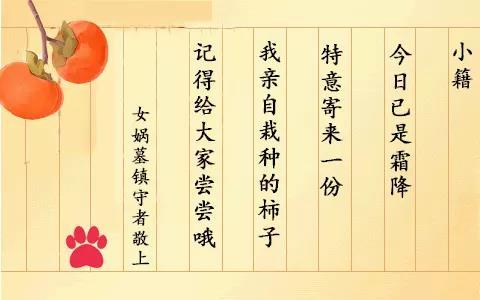 小籍
今日已是霜降
特意寄来一份
我亲自栽种的柿子
记得给大家尝尝哦
女娲墓镇守者敬上